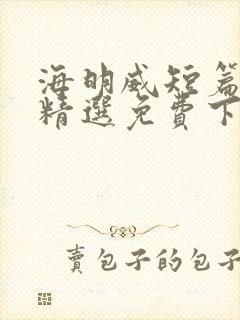 海明威短篇
精選免費下
賣包子的包子